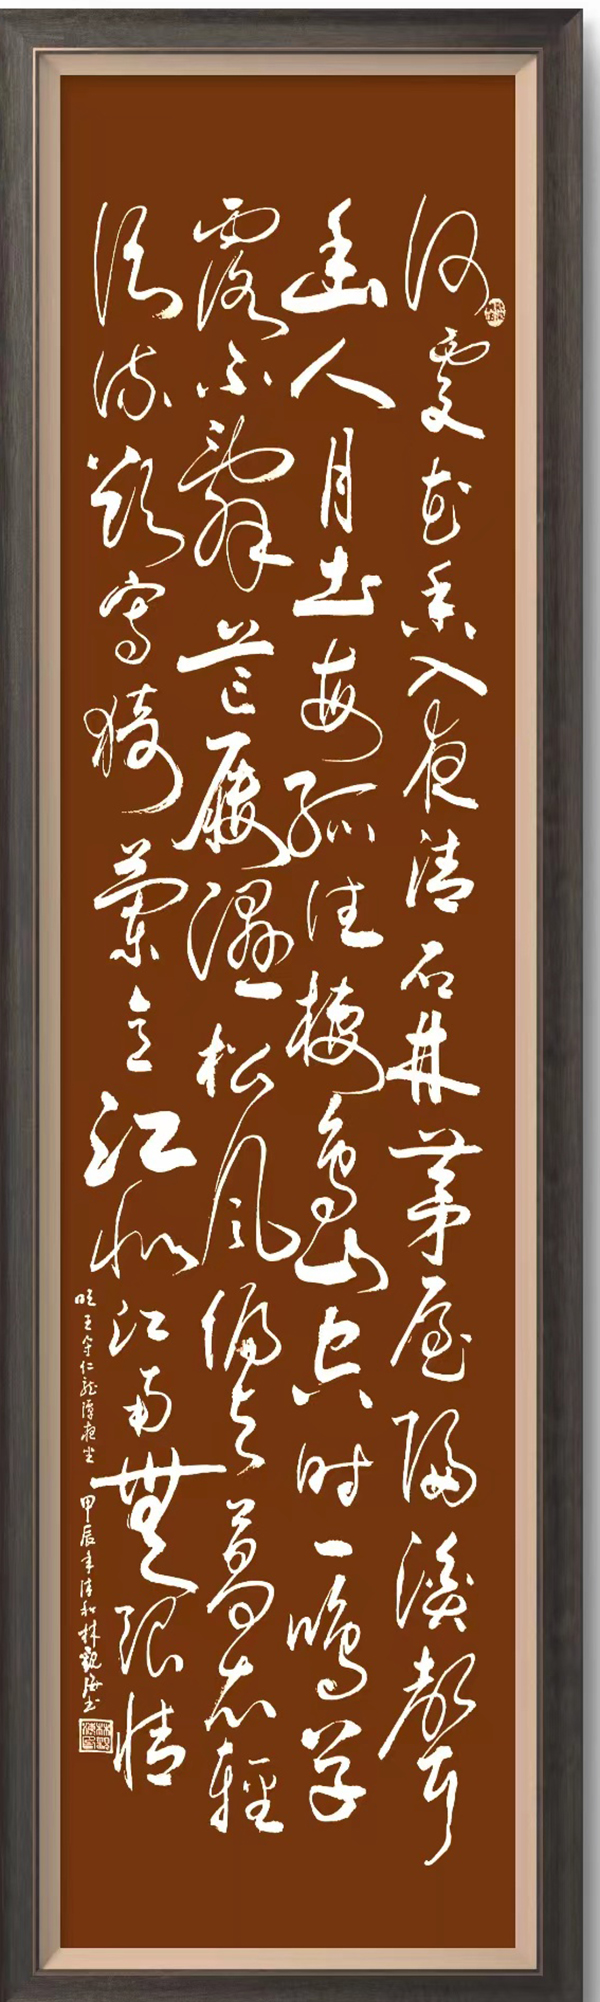 何處花香入夜清石林茅屋隔溪聲
幽人月出每孤往棲鳥山空時一鳴草
露不辭芒屨濕松風偏與葛衣輕
臨流欲寫猗蘭意江北江南無限情
明王守仁龍潭夜坐 甲辰年清和林觀海书